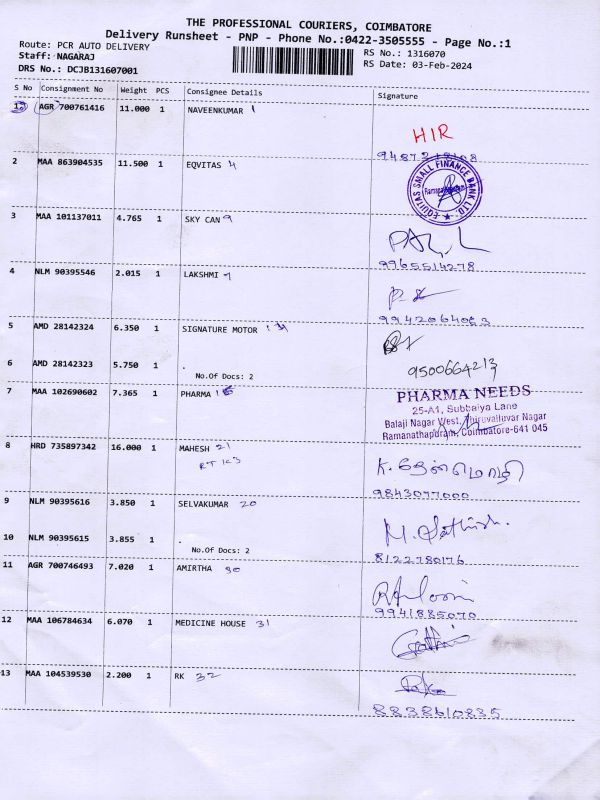 THE PROFESSIONAL COURIERS, COIMBATORE
Delivery Runsheet - PNP - Phone No.:0422-3505555 - Page No.:1
Route: PCR AUTO DELIVERY
Staff: NAGARAJ
DRS No.: DCJB131607001
RS No.: 1316070
RS Date: 03-Feb-2024
S No Consignment No Weight PCS Consignee Details Signature
AGR 700761416 11.000 1 NAVEENKUMAR 1
HIR
2 MAA 863904535 11.500 1 EQVITAS 4
EQUITAS SMALL FINANCE BANK LTD.
3 MAA 101137011 4.765 1 SKY CAN 9
9965514278
4 NLM 90395546 2.015 1 LAKSHMI 7
9942064063
5 AMD 28142324 6.350 1 SIGNATURE MOTOR 14
6 AMD 28142323 5.750 1 .
No.Of Docs: 2
9500664213
7 MAA 102690602 7.365 1 PHARMA 15
PHARMA NEEDS
25-A1, Subbaiya Lane
Balaji Nagar West, Thiruvalluvar Nagar
Ramanathapuram, Coimbatore-641 045
8 HRD 735897342 16.000 1 MAHESH 21
K. தேன்மொழி
9843077000
9 NLM 90395616 3.850 1 SELVAKUMAR 20
10 NLM 90395615 3.855 1 .
No.Of Docs: 2
M. Sathish.
8122780176
11 AGR 700746493 7.020 1 AMIRTHA 30
9941885070
12 MAA 106784634 6.070 1 MEDICINE HOUSE 31
13 MAA 104539530 2.200 1 RK 32
8838610835